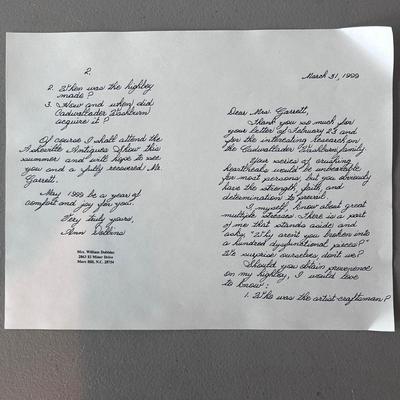 March 31, 1999
Dear Mrs. Garrett,
Thank you so much for
your letter of February 23 and
for the interesting research on
the Cadwallader Washburn family.
Your series of crushing
heartbreaks would be unbearable
for most persons, but you obviously
have the strength, faith, and
determination to prevail.
I, myself, know about great
multiple stresses. There is a part
of me that stands aside and
asks, "Why aren't you broken into
a hundred dysfunctional pieces?"
We surprise ourselves, don't we?
Should you obtain provenience
on my highboy, I would love
to know:
1. Who was the artist-craftsman?
2.
2. When was the highboy
made?
3. How and when did
Cadwallader Washburn
acquire it?
Of course I shall attend the
Asheville Antiques Show this
summer and will hope to see
you and a fully recovered Mr.
Garrett.
May 1999 be a year of
comfort and joy for you.
Very truly yours,
Ann Dobbins
Mrs. William Dobbins
2063 El Miner Drive
Mars Hill, N.C. 28754